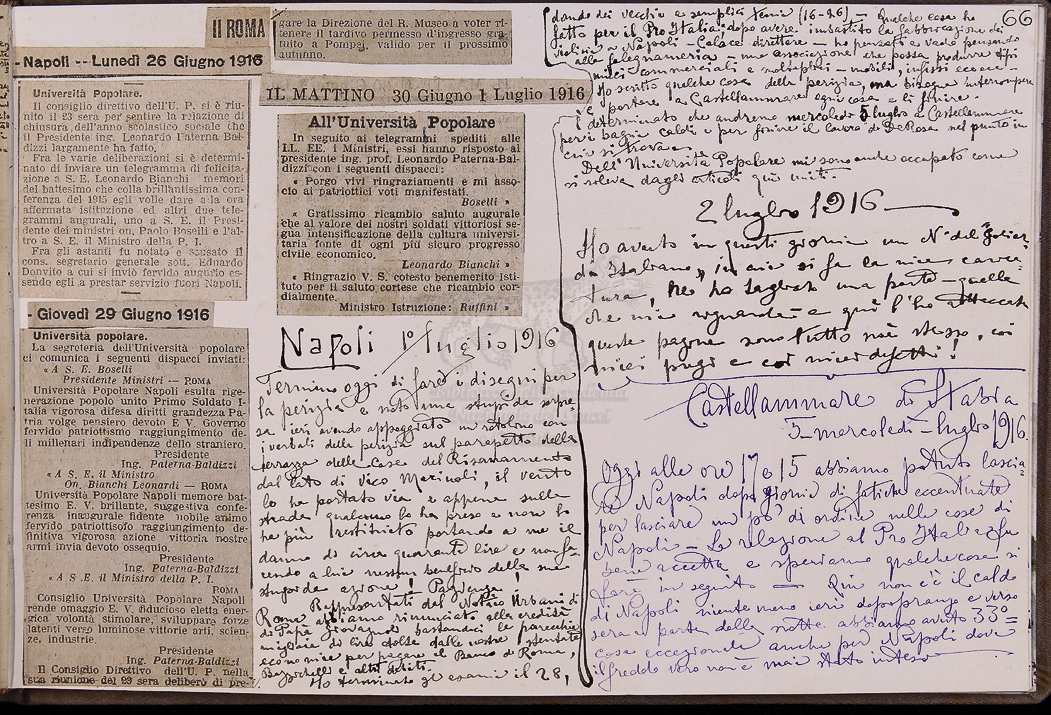 Il ROMA
- Napoli -- Lunedì 26 Giugno 1916
Università Popolare.
Il consiglio direttivo dell'U. P. si è riu-
nito il 23 sera per sentire la relazione di
chiusura dell'anno scolastico sociale che
il Presidente ing. Leonardo Paterna Bal-
dizzi largamente ha fatto.
Fra le varie deliberazioni si è determi-
nato di inviare un telegramma di felicita-
zione a S. E. Leonardo Bianchi memori
del battesimo che colla brillantissima con-
ferenza del 1915 egli volle dare a la ora
affermata istituzione ed altri due tele-
grammi augurali, uno a S. E. il Presi-
dente dei ministri on. Paolo Boselli e l'al-
tro a S. E. il Ministro della P. I.
Fra gli astanti fu notato e scusato il
cons. segretario generale sott. Eduardo
Donvito a cui si inviò fervido augurio es-
sendo egli a prestar servizio fuori Napoli.
- Giovedì 29 Giugno 1916
Università popolare.
La segreteria dell'Università popolare
ci comunica i seguenti dispacci inviati:
« A S. E. Boselli
Presidente Ministri — ROMA
Università Popolare Napoli esulta rige-
nerazione popolo unito Primo Soldato I-
talia vigorosa difesa diritti grandezza Pa-
tria volge pensiero devoto E. V. Governo
fervido patriottismo raggiungimento de-
li millenari indipendenze dello straniero.
Presidente
Ing. Paterna-Baldizzi
« A S. E. il Ministro
On. Bianchi Leonardi — ROMA
Università Popolare Napoli memore bat-
tesimo E. V. brillante, suggestiva confe-
renza inaugurale fidente nobile animo
fervido patriottisofo raggiungimento de-
finitiva vigorosa azione vittoria nostre
armi invia devoto ossequio.
Presidente
Ing. Paterna-Baldizzi
« A S .E. il Ministro della P. I.
ROMA
Consiglio Università Popolare Napoli
rende omaggio E. V. fiducioso eletta ener-
gica volontà stimolare, sviluppare forze
latenti verso luminose vittorie arti, scien-
ze, industrie.
Presidente
Ing. Paterna-Baldizzi
Il Consiglio Direttivo dell'U. P. nella
sua riunione del 23 sera deliberò di pre-
gare la Direzione del R. Museo a voler ri-
tenere il tardivo permesso d'ingresso gra-
tuito a Pompei, valido per il prossimo
autunno.
IL MATTINO 30 Giugno 1 Luglio 1916
All'Università Popolare
In seguito ai telegrammi spediti alle
LL. EE. i Ministri, essi hanno risposto al
presidente ing. prof. Leonardo Paterna-Bal-
dizzi con i seguenti dispacci:
« Porgo vivi ringraziamenti e mi asso-
cio ai patriottici voti manifestati.
Boselli »
« Gratissimo ricambio saluto augurale
che al valore dei nostri soldati vittoriosi se-
gua intensificazione della cultura universi-
taria fonte di ogni più sicuro progresso
civile economico.
Leonardo Bianchi »
« Ringrazio V. S. cotesto benemerito isti-
tuto per il saluto cortese che ricambio cor-
dialmente.
Ministro Istruzione: Ruffini »
Napoli 1° luglio 1916
Termino oggi di fare i disegni per
la perizia e noto una stupida sorpre
sa ieri avendo appoggiato un rotolino con
i verbali della perizia sul parapetto della
terrazza delle Case del Risanamento
dal lato di Vico Marinoli, il vento
lo ha portato via e appena sulla
strada qualcuno lo ha preso e non lo
ha più restituito portando a me il
danno di circa quaranta lire e non fa-
cendo a lui nessun beneficio della sua
stupida azione! Pazienza!
Rappresentati dal Notaio Urbani di
Roma abbiamo rinunciato alla eredità
di Papà Giovagnoli bastando le parecchie
migliaia di lire tolte dalle nostre stentate
economie per pagare il Banco di Roma,
e altri debiti.
Ho terminato gli esami il 28,
66
dando dei vecchi e semplici temi (16-26) — Qualche cosa ho
fatto per il Pro Italia: dopo avere imbastito la fabbricazione dei
violini a Napoli - Calace direttore - ho pensato e vado pensando
alla falegnameria - una associazione che possa produrre tipi
mobili, infissi ecc ecc -
Ho scritto qualche cosa della perizia, ma bisogna interrompere
e portare a Castellammare ogni cosa e lì finire.
È determinato che andremo mercoledì 5 luglio a Castellammare
per i bagni caldi e per finire il lavoro di De Rosa nel punto in
cui si trova.
Dell'Università Popolare mi sono anche occupato come
si rileva dagli articoli qui uniti.
2 luglio 1916
Ho avuto in questi giorni un N° del "Goliar-
do Italiano", in cui si fa la mia carica
tura, ne ho tagliato una parte - quella
che mi riguarda - e qui l'ho attaccata
queste pagine sono tutto me stesso, coi
miei pregi e coi miei difetti!
Castellammare di Stabia
5 - mercoledì - luglio 1916.
Oggi alle ore 17 e 15 abbiamo potuto lascia
re Napoli dopo giorni di fatiche eccentuate
per lasciare un po' di ordine nelle cose di
Napoli - La relazione al Pro Italia fu
bene accetta e speriamo qualche cosa si
farà in seguito - Qui non c'è il caldo
di Napoli niente meno ieri dopopranzo e verso
sera e parte della notte abbiamo avuto 33°
cosa eccezionale anche per Napoli dove
il freddo vero non è mai stato inteso